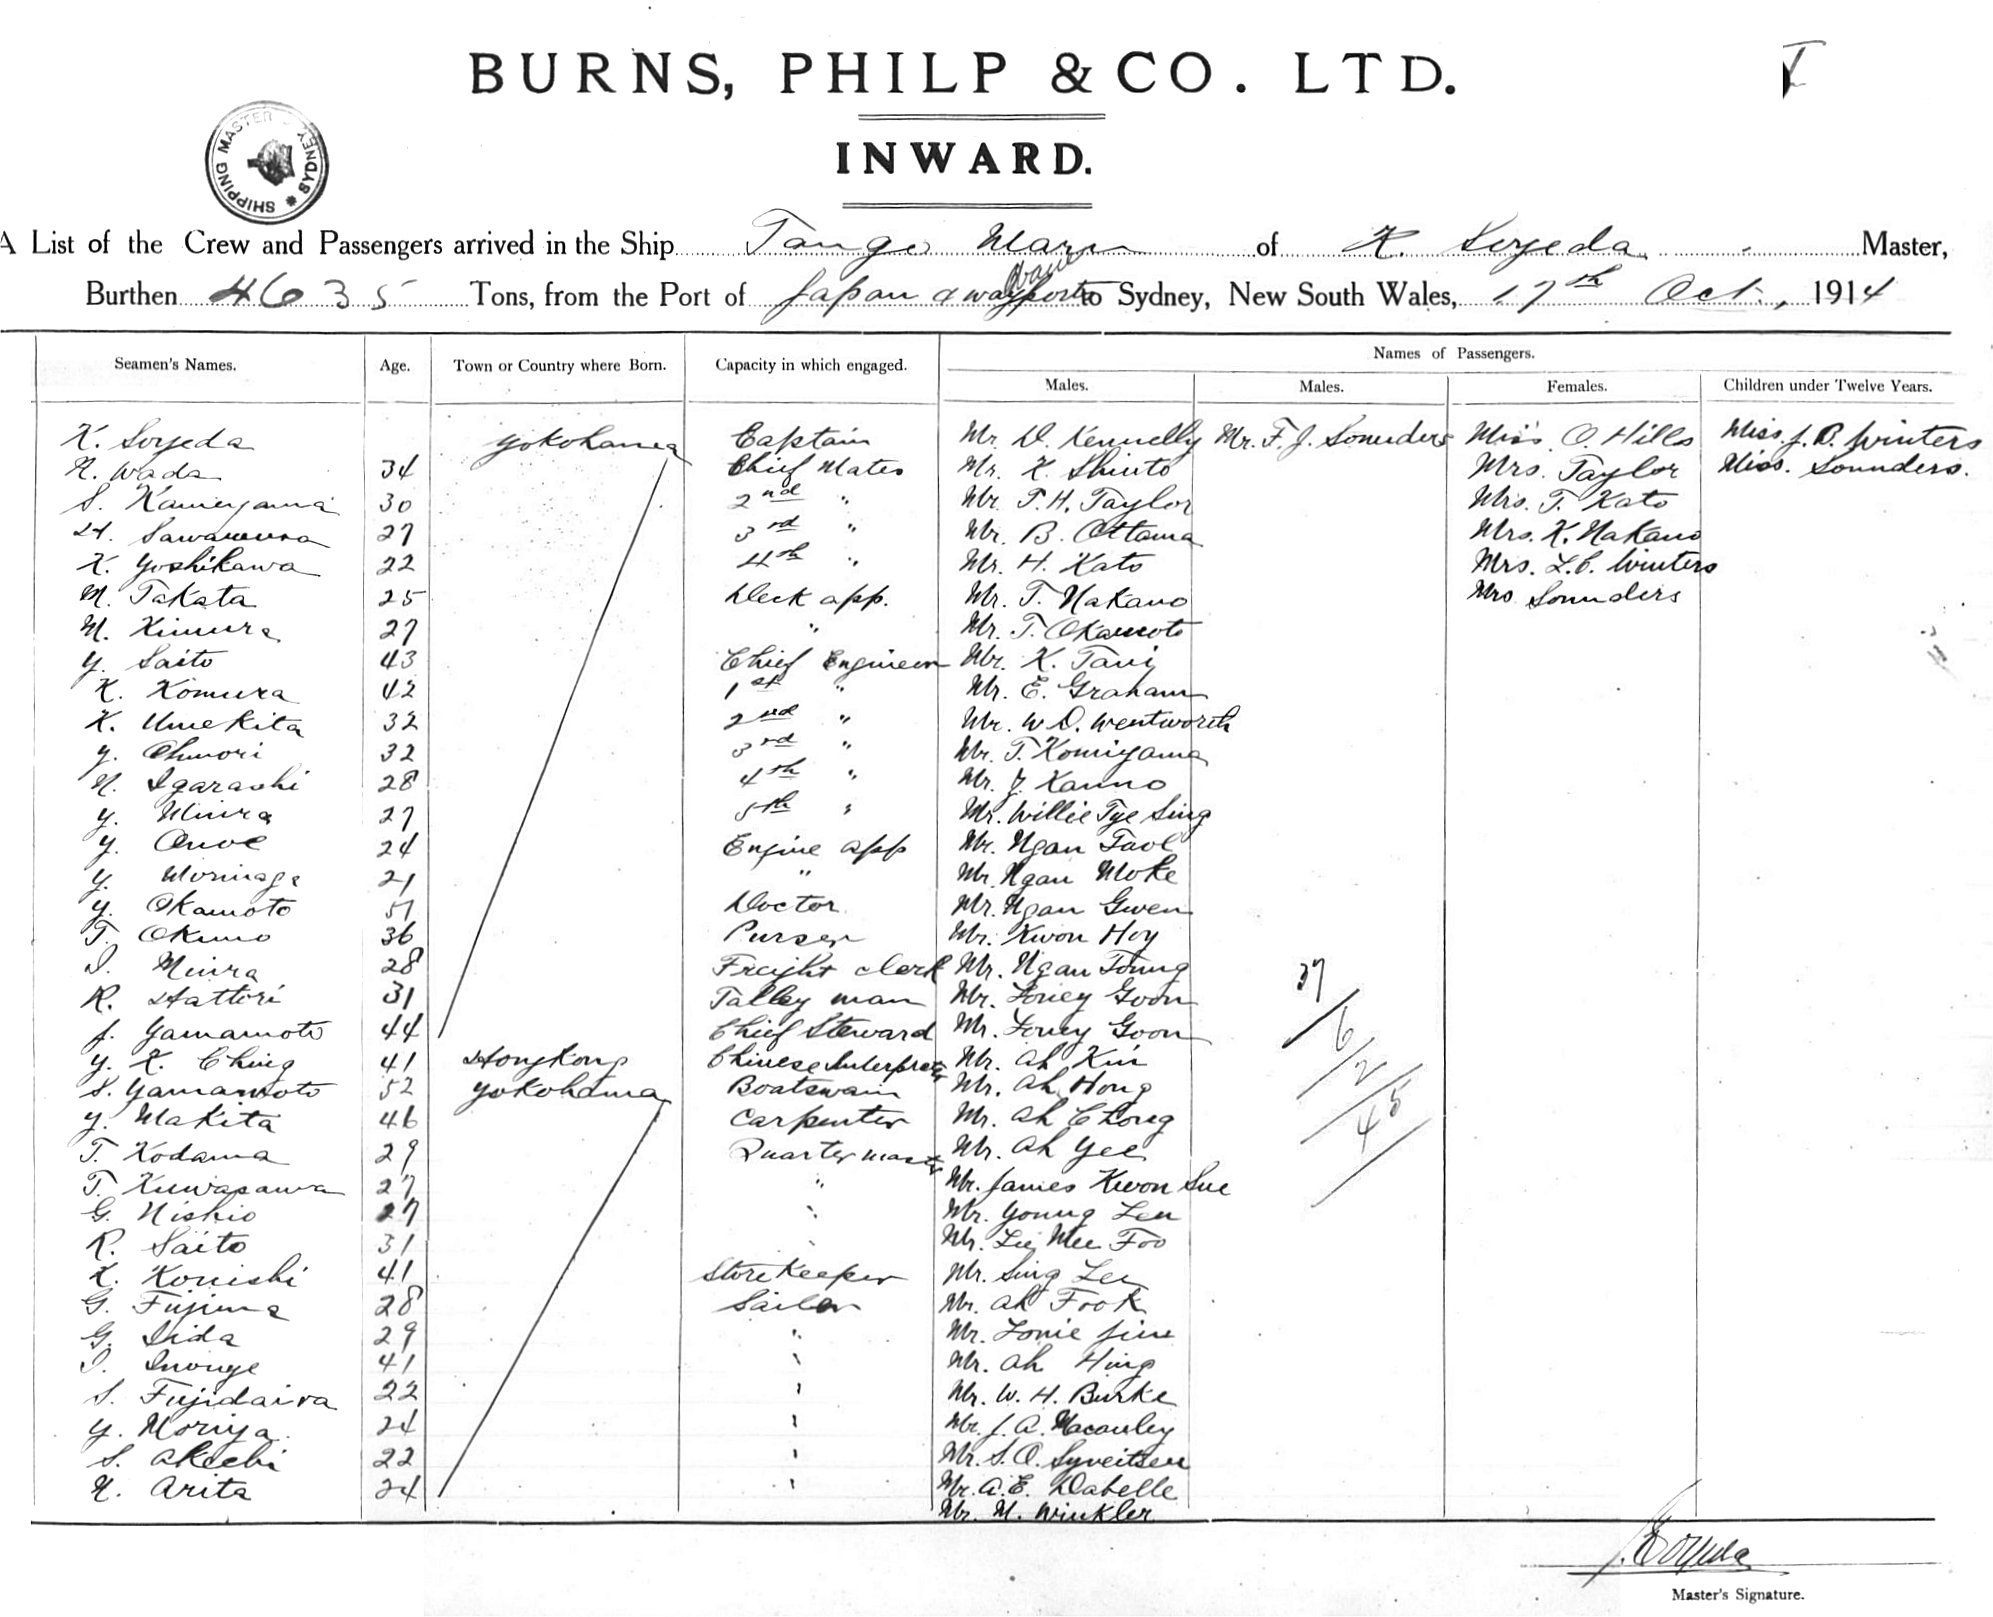 BURNS, PHILP & CO. LTD.
I
INWARD.
SHIPPING MASTER SYDNEY
A List of the Crew and Passengers arrived in the Ship Tango Maru of K. Soyeda Master,
Burthen 4635 Tons, from the Port of Japan & wayports to Sydney, New South Wales, 17th Oct., 1914
Names of Passengers.
Seamen's Names. Age. Town or Country where Born. Capacity in which engaged. Males. Males. Females. Children under Twelve Years.
K. Soyeda Yokohama Captain Mr. D. Kennelly Mr. F. J. Sounders Miss O. Hills Miss J. B. Winters
N. Wada 34 Chief Mate Mr. K. Shinto Mrs. Taylor Miss. Sounders.
S. Kameyama 30 2nd " Mr. P. H. Taylor Mrs. T. Kato
H. Sawamura 27 3rd " Mr. B. Ottama Mrs. K. Nakano
K. Yoshikawa 22 4th " Mr. H. Kato Mrs. L. C. Winters
M. Takata 25 Deck app. Mr. T. Nakano Mrs Sounders
M. Kimura 27 " Mr. T. Okamoto
Y. Saito 43 Chief Engineer Mr. K. Tani
K. Komura 42 1st " Mr. E. Graham
K. Umekita 32 2nd " Mr. W. D. Wentworth
Y. Ohmori 32 3rd " Mr. T. Komiyama
N. Igarashi 28 4th " Mr. J. Kanno
Y. Miura 27 5th " Mr. Willie Tye Sing
Y. Onoe 24 Engine app Mr. Ngan Taol
Y. Morinaga 21 " Mr. Ngan Moke
Y. Okamoto 51 Doctor Mr. Ngan Gwen
T. Okuno 36 Purser Mr. Kwon Hoy
I. Miura 28 Freight clerk Mr. Ngan Toung
R. Hattori 31 Talley man Mr. Loney Goon
J. Yamamoto 44 Chief Steward Mr. Loney Goon
Y. K. Ching 41 Hongkong Chinese Interpreter Mr. Ah Kin
S. Yamamoto 52 Yokohama Boatswain Mr. Ah Hong
Y. Makita 46 Carpenter Mr. Ah Chong
T. Kodama 29 Quarter master Mr. Ah Yee
T. Kuwasawa 27 " Mr. James Kwon Sue
G. Nishio 27 " Mr. Young Len
R. Saito 31 " Mr. Lie Mee Foo
K. Konishi 41 Store Keeper Mr. Sing Lee
G. Fujima 28 Sailor Mr. Ah Fook
G. Iida 29 " Mr. Lonie Jine
I. Inouye 41 " Mr. Ah Hing
S. Fujidaira 22 " Mr. W. H. Burke
Y. Moriya 24 " Mr. J. A. Macauley
S. Akechi 22 " Mr. S. O. Syveitsen
N. Arita 24 " Mr. A. E. Dabelle
Mr. M. Winkler
37
6
2
45
K. Soyeda
Master's Signature.